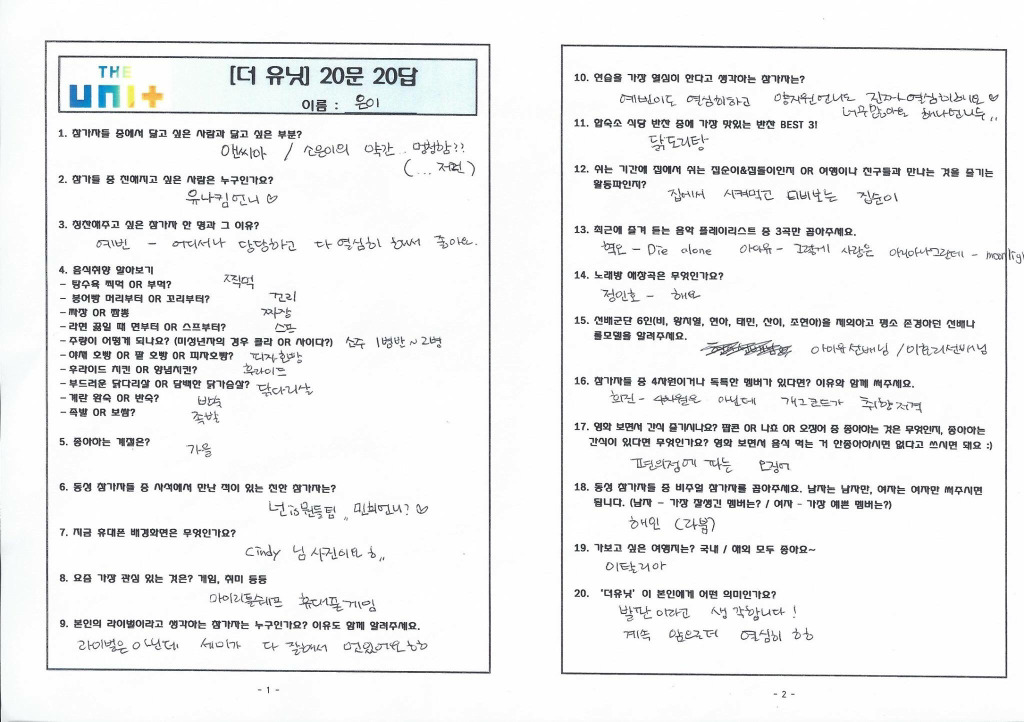 THE
UNI+
[더 유닛] 20문 20답
이름 : 은이
1. 참가자들 중에서 닮고 싶은 사람과 닮고 싶은 부분?
앤씨아 / 소은이의 약간 멍청함??
(... 저런)
2. 참가들 중 친해지고 싶은 사람은 누구인가요?
유나킴언니♡
3. 칭찬해주고 싶은 참가자 한 명과 그 이유?
예빈 - 어디서나 당당하고 다 열심히 해서 좋아요.
4. 음식취향 알아보기
- 탕수육 찍먹 OR 부먹? 찍먹
- 붕어빵 머리부터 OR 꼬리부터? 꼬리
- 짜장 OR 짬뽕 짜장
- 라면 끓일 때 면부터 OR 스프부터? 스프
- 주량이 어떻게 되나요? (미성년자의 경우 콜라 OR 사이다?) 소주 1병반~2병
- 야채 호빵 OR 팥 호빵 OR 피자호빵? 피자호빵
- 후라이드 치킨 OR 양념치킨? 후라이드
- 부드러운 닭다리살 OR 담백한 닭가슴살? 닭다리살
- 계란 완숙 OR 반숙? 반숙
- 족발 OR 보쌈? 족발
5. 좋아하는 계절은? 가을
6. 동성 참가자들 중 사석에서 만난 적이 있는 친한 참가자는?
넌is뭔들팀,, 민희언니?♡
7. 지금 휴대폰 배경화면은 무엇인가요?
Cindy 님 사진이요ㅎ,,
8. 요즘 가장 관심 있는 것은? 게임, 취미 등등
마이리틀셰프 휴대폰게임
9. 본인의 라이벌이라고 생각하는 참가자는 누구인가요? 이유도 함께 알려주세요.
라이벌은 아닌데 세미가 다 잘해서 멋있어요ㅎㅎ
- 1 -
10. 연습을 가장 열심히 한다고 생각하는 참가자는?
예빈이도 열심히하고 양지원언니도 진짜 열심히해요♡
너무많아요 해나언니두,,
11. 합숙소 식당 반찬 중에 가장 맛있는 반찬 BEST 3!
닭도리탕
12. 쉬는 기간에 집에서 쉬는 집순이&집돌이인지 OR 여행이나 친구들과 만나는 것을 즐기는
활동파인지?
집에서 시켜먹고 티비보는 집순이
13. 최근에 즐겨 듣는 음악 플레이리스트 중 3곡만 꼽아주세요.
혁오 - Die alone 아이유 - 그렇게 사랑은 아니아나그런데 - moonlight
14. 노래방 애창곡은 무엇인가요?
정인호 - 해요
15. 선배군단 6인(비, 황치열, 현아, 태민, 산이, 조현아)을 제외하고 평소 존경하던 선배나
롤모델을 알려주세요.
아이유선배님 / 이효리선배님
16. 참가자들 중 4차원이거나 독특한 멤버가 있다면? 이유와 함께 써주세요.
희진 - 4차원은 아닌데 개그코드가 취향저격
17. 영화 보면서 간식 즐기시나요? 팝콘 OR 나쵸 OR 오징어 중 좋아하는 것은 무엇인지, 좋아하는
간식이 있다면 무엇인가요? 영화 보면서 음식 먹는 거 안좋아하시면 없다고 쓰시면 돼요 :)
편의점에 파는 오징어
18. 동성 참가자들 중 비주얼 참가자를 꼽아주세요. 남자는 남자만, 여자는 여자만 써주시면
됩니다. (남자 - 가장 잘생긴 멤버는? / 여자 - 가장 예쁜 멤버는?)
해인 (라붐)
19. 가보고 싶은 여행지는? 국내 / 해외 모두 좋아요~
이탈리아
20. '더유닛' 이 본인에게 어떤 의미인가요?
발판이라고 생각합니다!
계속 앞으로더 열심히 ㅎㅎ
- 2 -